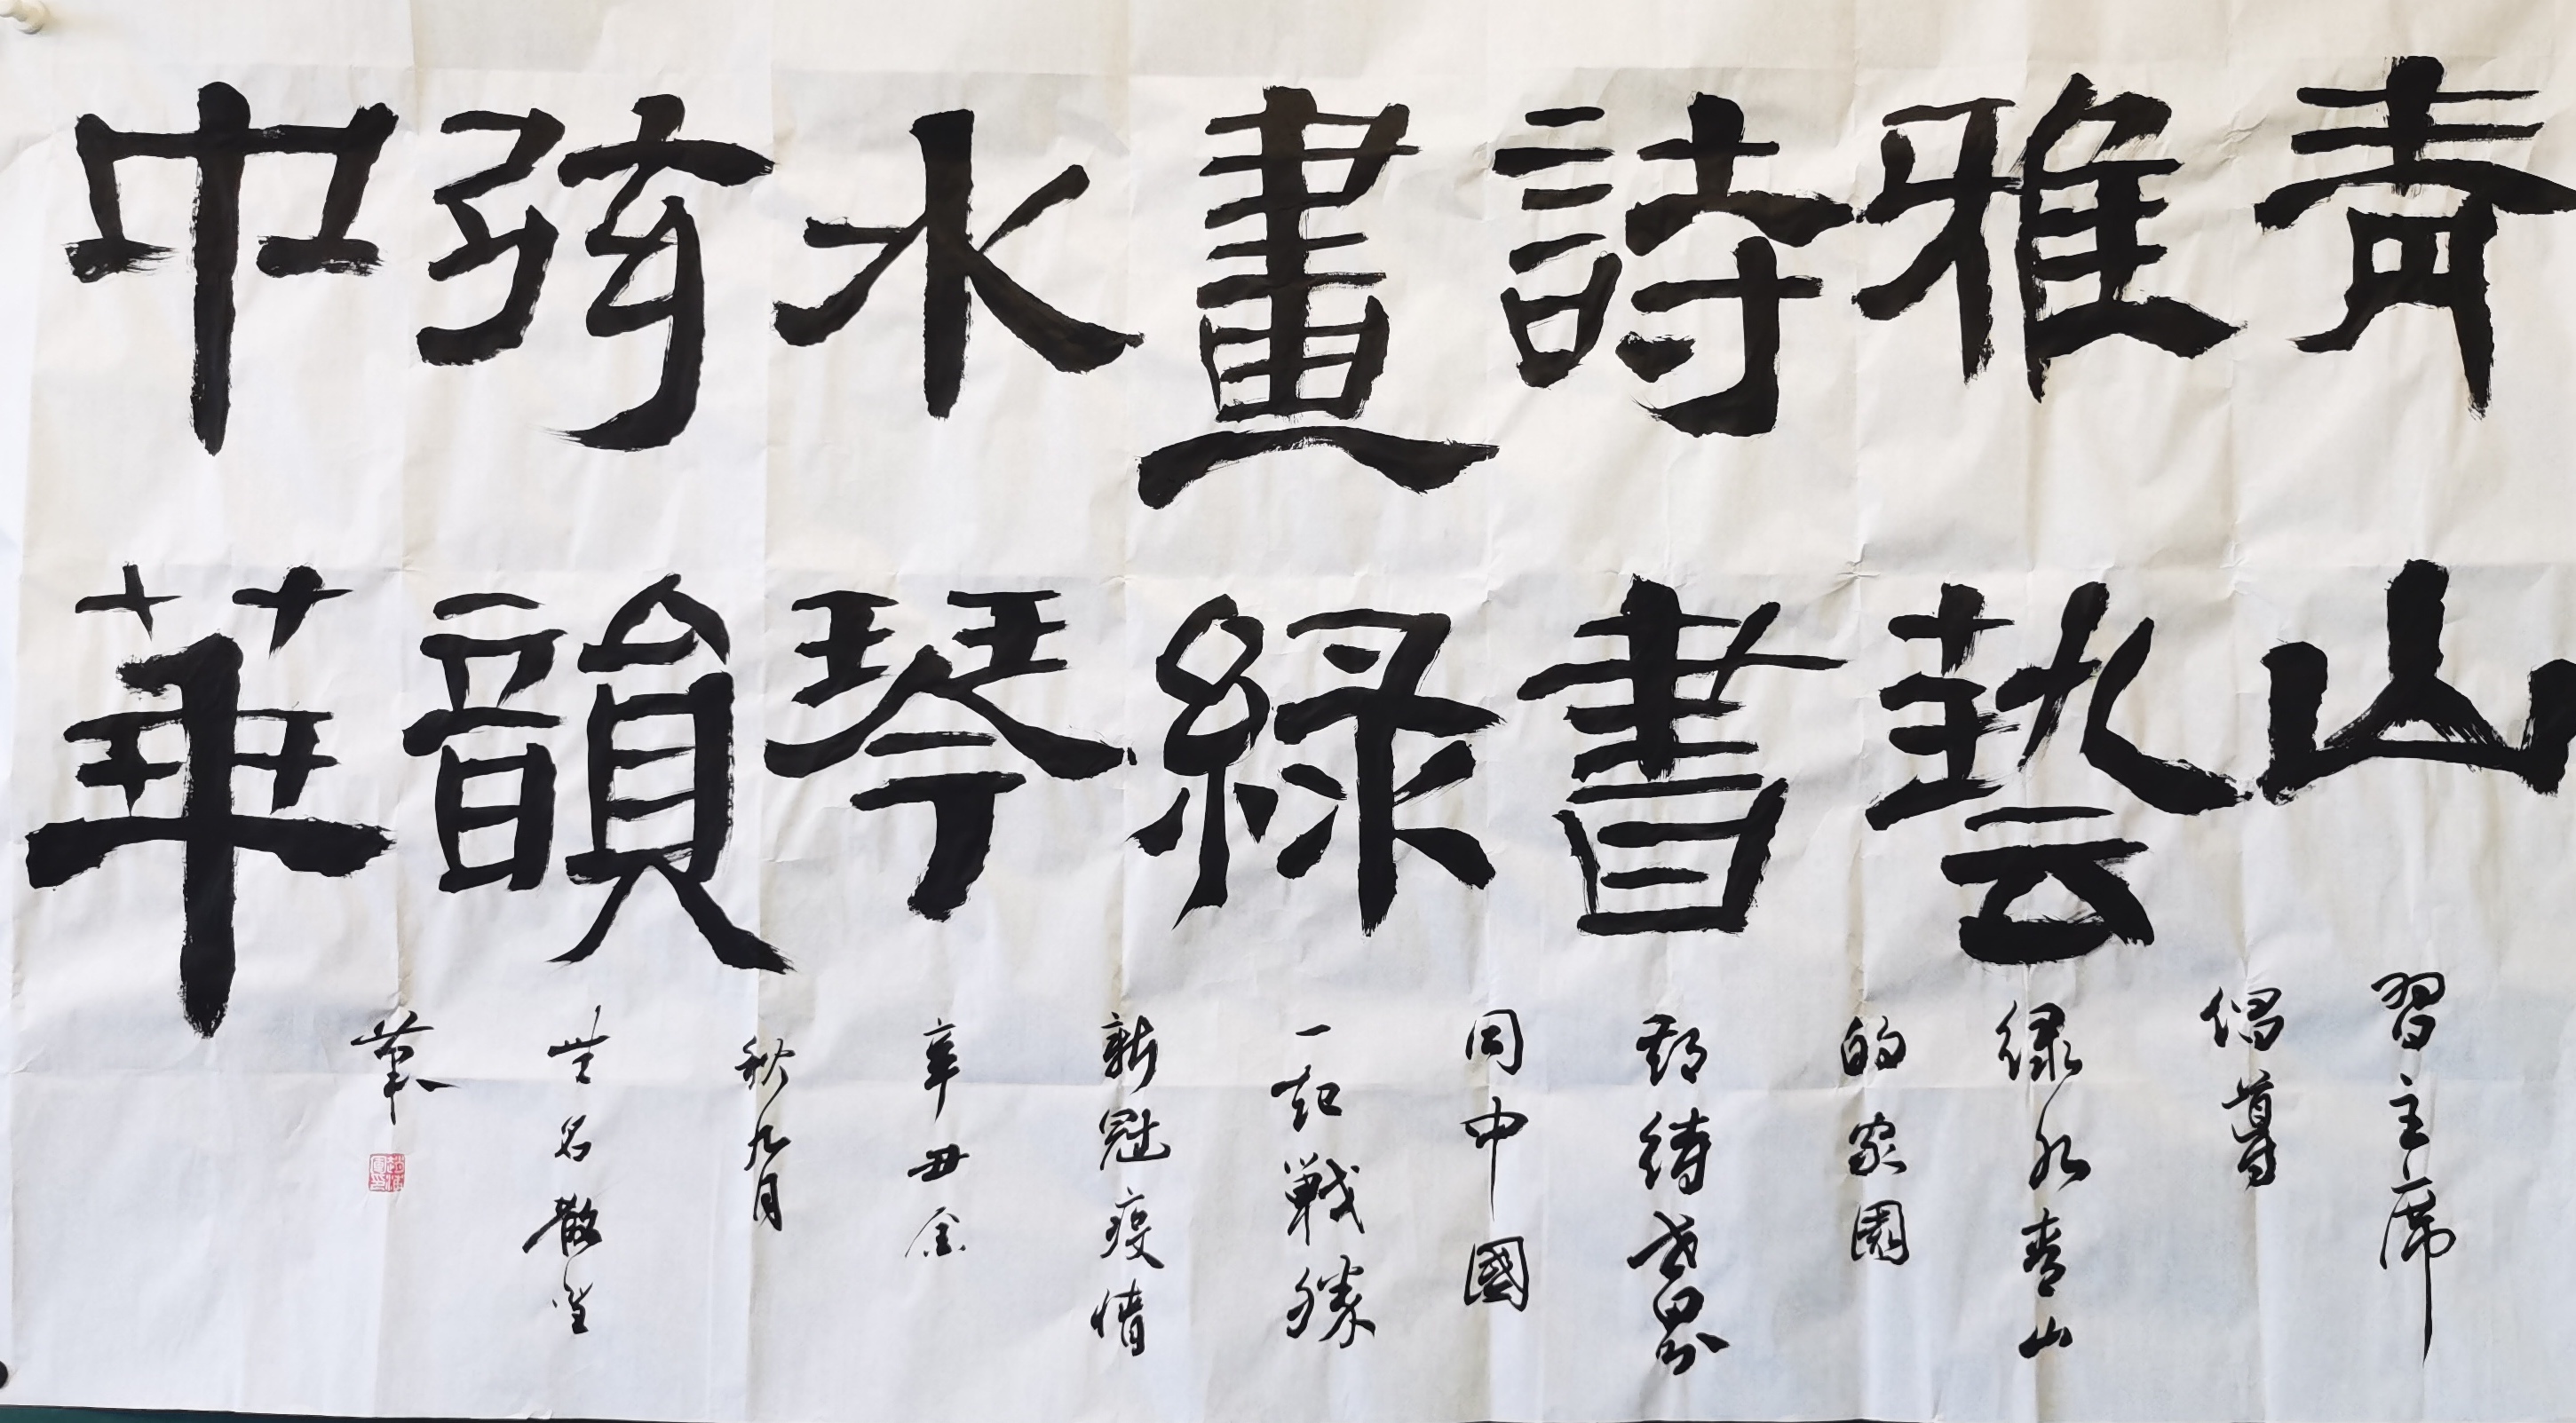 青山
雅藝
詩書
畫綠
水琴
弦韻
中華
習主席
倡導
绿水青山
的家園
期待世界
同中國
一起戰勝
新冠疫情
辛丑金
秋九月
名散